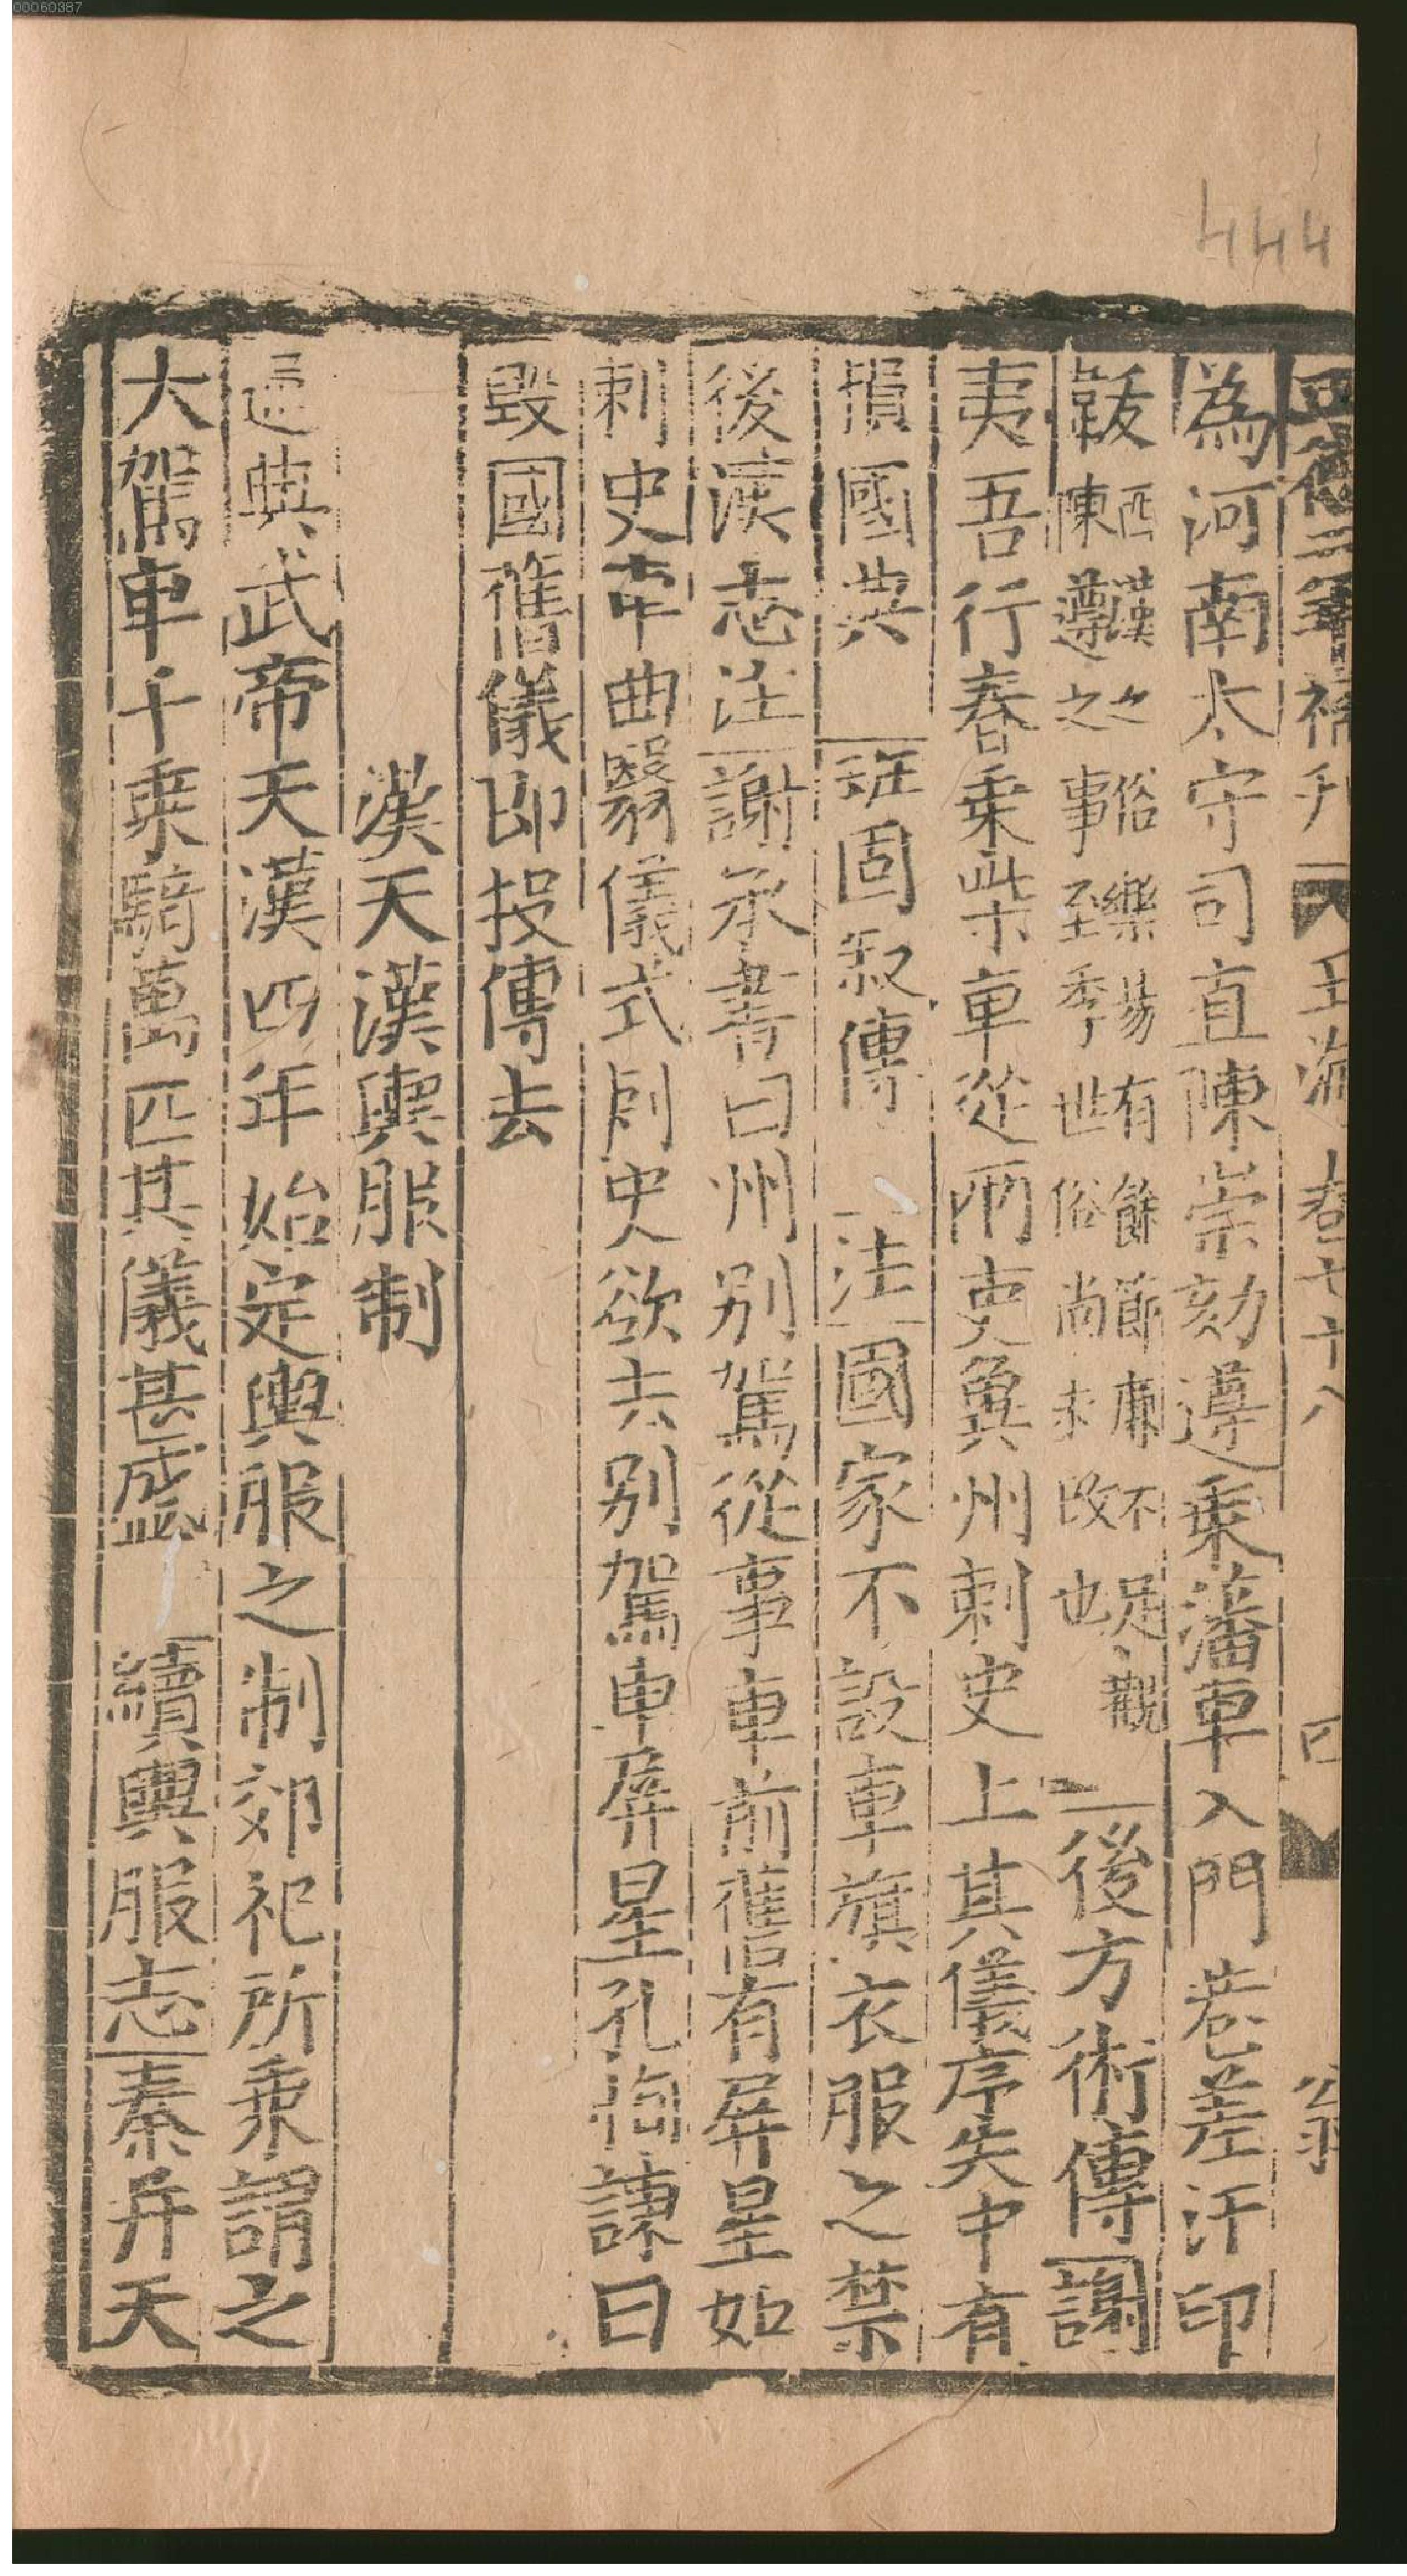 00060387
444
玉海卷七十八
為河南太守司直陳崇劾遵乘藩車入門巷差汗印
韍西漢之俗樂易有餘節廉不足觀陳遵之事至季世俗尚未改也後方術傳謝
夷吾行春乗柴車從兩吏冀州刺史上其儀序失中有
損國典 班固叙傳 注國家不設車旗衣服之禁
後漢志注謝承書曰州别駕從事車前舊有屏星如
刺史車曲翳儀式刺史欲去别駕車屏星孔恂諫曰
毀國舊儀即投傳去
漢天漢輿服制
通典武帝天漢四年始定輿服之制郊祀所乗謂之
大駕車千乗騎萬匹其儀甚盛 續輿服志秦并天